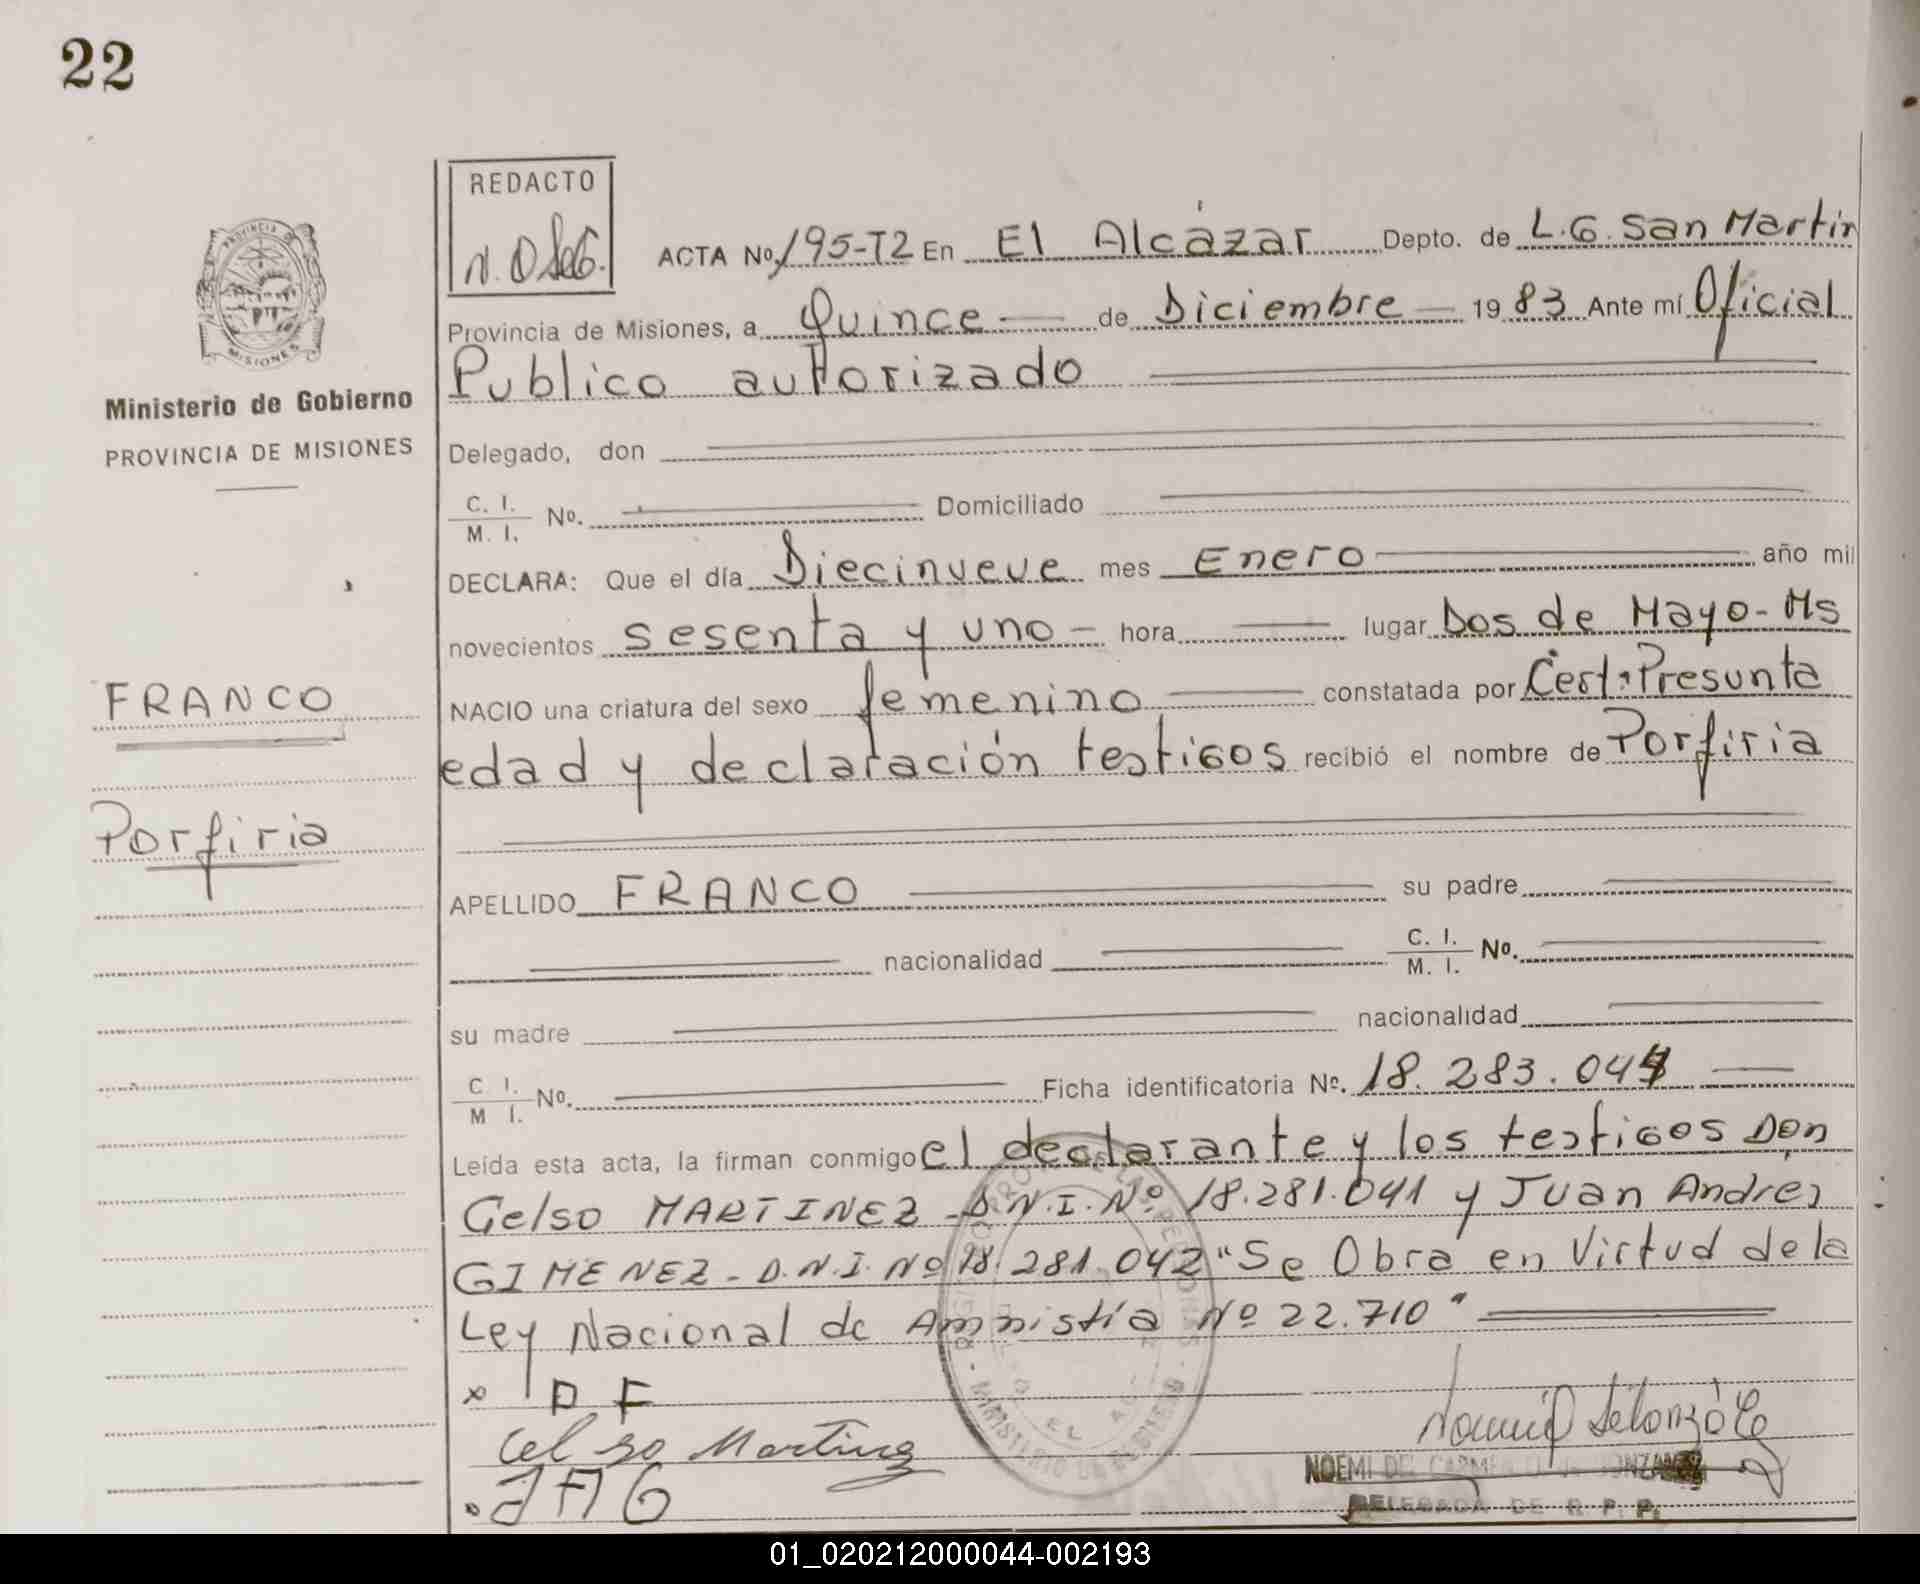 22
REDACTO
ACTA No. 195-T2 En El Alcázar Depto. de L.G. San Martin
Provincia de Misiones, a Quince de Diciembre 1983 Ante mí Oficial
Publico autorizado
PROVINCIA DE
MISIONES
Ministerio de Gobierno
PROVINCIA DE MISIONES
Delegado, don
C. I.
M. I. No. Domiciliado
DECLARA: Que el día Diecinueve mes Enero año mil
novecientos sesenta y uno - hora lugar Dos de Mayo - Ms
FRANCO
NACIO una criatura del sexo femenino constatada por Cert. Presunta
edad y declaración testigos recibió el nombre de Porfiria
Porfiria
APELLIDO FRANCO su padre
nacionalidad C. I.
M. I. No.
su madre nacionalidad
C I.
M I. No. Ficha identificatoria No. 18.283.044
Leída esta acta, la firman conmigo el declarante y los testigos Don
Celso MARTINEZ - D.N.I. Nº 18.281.041 y Juan Andres
GIMENEZ - D.N.I. Nº 18.281.042 "Se Obra en Virtud de la
Ley Nacional de Amnistía Nº 22.710"
x P F
Celso Martinez
JAG
NOEMI DEL CARMEN
DELEGADA DE R. P. P.
01_020212000044-002193